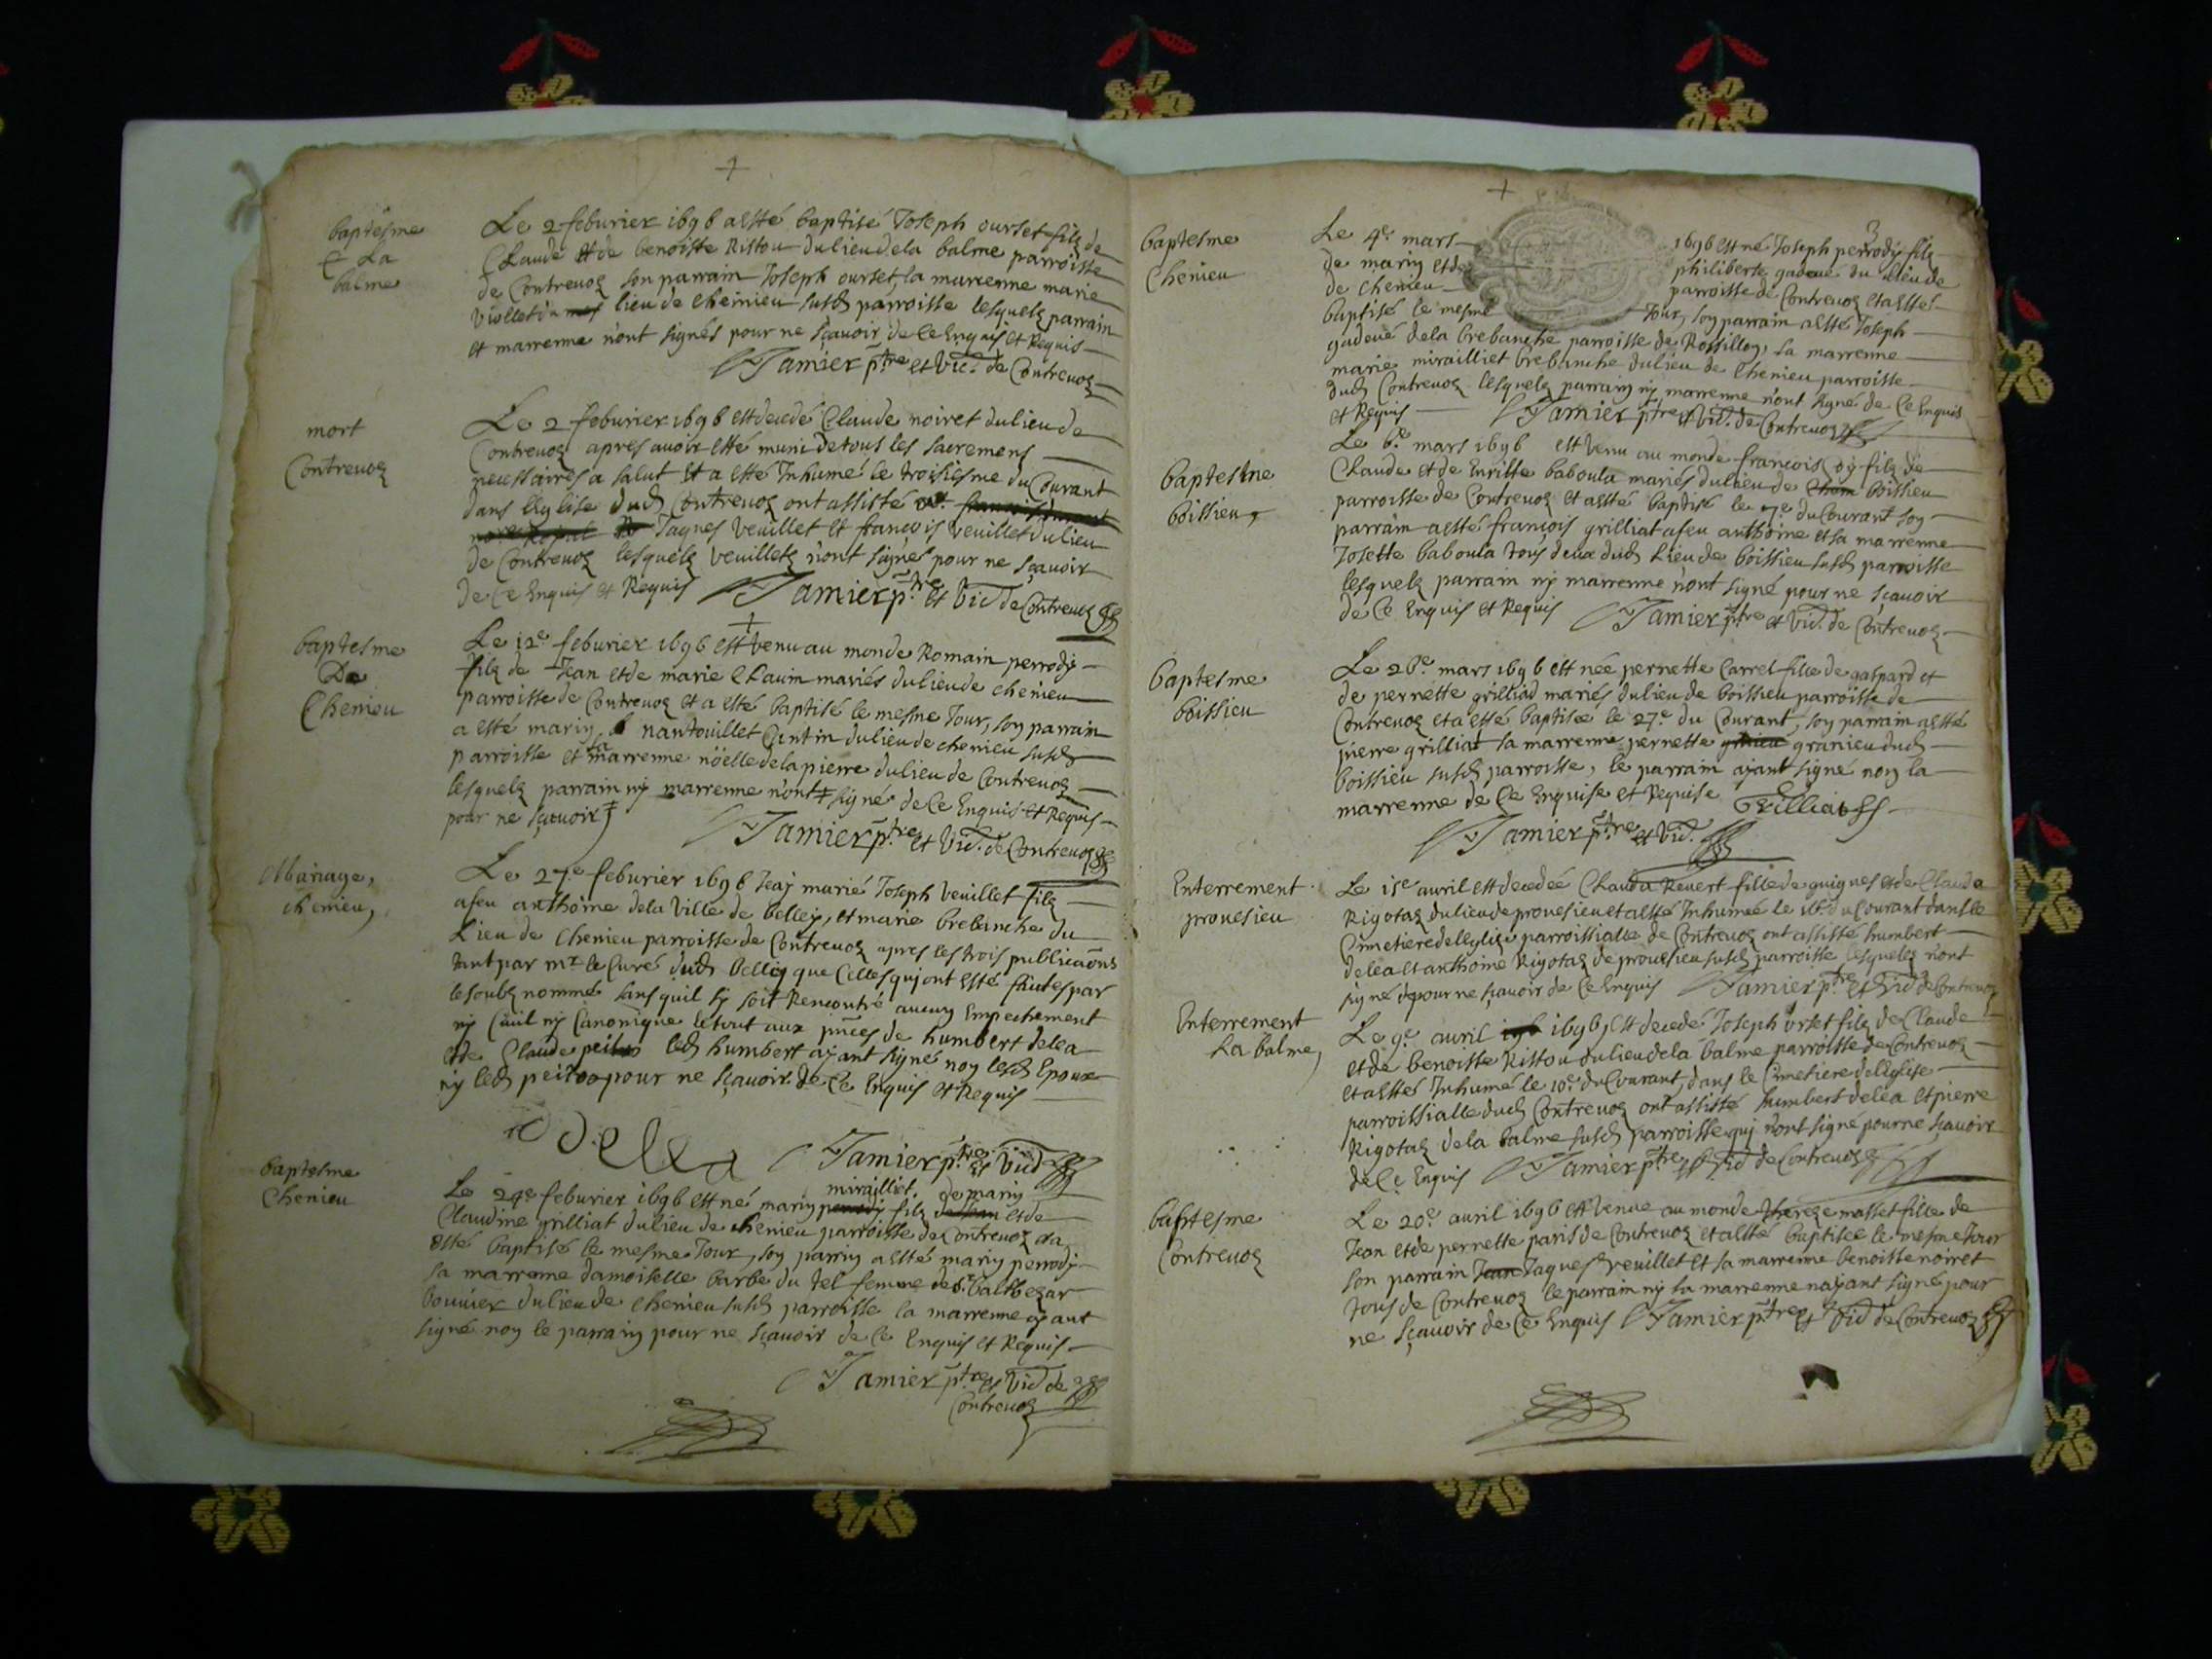 baptesme
& La
balme
Le 2 feburier 1696 a esté baptisé Joseph ourset filz de
Claude et de benoiste Ristou du lieu de la balme parroisse
de Contreuoz son parrain Joseph ourset, la marrenne marie
Viollet du lieu de cheinieu susd parroisse lesquelz parrain
et marrenne n'ont signés pour ne sçauoir de Ce Enquis et Requis
Jamier ptre et Vic. de Contreuoz
mort
Contreuoz
Le 2 feburier 1696 est decedé Claude noiret du lieu de
Contreuoz apres auoir esté muni de tous les sacremens
necessaires a salut et a esté Inhumé le troisiesme du Courant
dans l'Eglise dud Contreuoz ont assisté
Jaques Veuillet et francois Veuillet du lieu
de Contreuoz lesquelz Veuilletz n'ont signés pour ne sçauoir
de Ce Enquis et Requis Jamier ptre et Vic de Contreuoz
baptesme
De
Chenieu
Le 12e feburier 1696 est venu au monde Romain perrody
filz de Jean et de marie Chaum mariés du lieu de chenieu
parroisse de Contreuoz et a esté baptisé le mesme Jour, son parrain
a esté marin nantouillet Cantin du lieu de chenieu susd
parroisse et sa marrenne nöelle de la pierre du lieu de Contreuoz
lesquelz parrain ny marrenne n'ont signé de Ce Enquis et Requis
pour ne sçauoir
Jamier ptre et Vic. de Contreuoz
Mariage,
chenieu,
Le 27e feburier 1696 Jeay marié Joseph Veuillet filz
a feu anthoine de la Ville de belley, et marie brebanche du
Lieu de Chenieu parroisse de Contreuoz apres les trois publicaons
tant par mr le Curé dud belley que Celles qui ont esté faites par
le soubz nommé sans quil sy soit Rencontré aucun Empechement
ny Ciuil ny Canonique le tout aux pnces de humbert delea
et de Claude led humbert ayant signé non lesd Epoux
ny led peiteo pour ne sçauoir de Ce Enquis et Requis
Delea Jamier ptre et Vic
baptesme
Chenieu
mirailliet. de marin
Le 24e feburier 1696 est né marin perrody filz de Jean et de
Claudine grilliat du lieu de chenieu parroisse de Contreuoz et a
esté baptisé le mesme Jour, son parrin a esté marin perrody
sa marrenne damoiselle barbe du tel femme de sr balthezar
bouuier du lieu de Chenieu susd parroisse la marrenne ayant
signé non le parrain pour ne sçauoir de Ce Enquis et Requis
Jamier ptre et Vic de
Contreuoz
3
baptesme
Chenieu
Le 4e mars 1696 est né Joseph perrody filz
de marin et de philiberte gadeue du lieu de
de chenieu parroisse de Contreuoz et a esté
baptisé le mesme Jour, son parrain a esté Joseph
gadeué de la brebanche parroisse de Rossillon, sa marrenne
marie mirailliet brebanche du lieu de Chenieu parroisse
dud Contreuoz lesquelz parrain ny marrenne n'ont signé de Ce Enquis
et Requis Jamier ptre et Vic. de Contreuoz
baptesme
boissieu,
Le 6e mars 1696 est Venu au monde francois Coy filz de
Claude et de Enriette baboula mariés du lieu de boissieu
parroisse de Contreuoz et a esté baptisé le 7e du Courant son
parrain a esté françois grilliat a feu anthoine et sa marrenne
Josette baboula tous deux dud Lieu de boissieu susd parroisse
lesquelz parrain ny marrenne n'ont signé pour ne sçauoir
de Ce Enquis et Requis Jamier ptre et Vic. de Contreuoz
baptesme
boissieu
Le 26e mars 1696 est née pernette Carrel fille de gaspard et
de pernette grilliad mariés du lieu de boissieu parroisse de
Contreuoz et a esté baptisée le 27e du Courant, son parrain a esté
pierre grilliat sa marrenne pernette granieu dud
boissieu susd parroisse, le parrain ayant signé non la
marrenne de Ce Enquise et Requise Grilliat
Jamier ptre et Vic.
Enterrement
prouesieu
Le 15e auril est decedée Clauda Reuert fille de guigues et de Clauda
Rigotaz du lieu de prouesieu et a esté Inhumée le 16e du Courant dans le
Cimetiere de l'eglize parroissialle de Contreuoz ont assisté humbert
delea et anthoine Rigotaz de prouesieu susd parroisse lesquelz n'ont
signé pour ne sçauoir de Ce Enquis Jamier ptre et Vic de Contreuoz
Enterrement
La balme,
Le 9e auril 1696 est decedé Joseph orset filz de Claude
et de benoiste Ristou du lieu de la balme parroisse de Contreuoz
et a esté Inhumé le 10e du Courant, dans le Cimetiere de l'Eglise
parroissialle dud Contreuoz ont assisté humbert delea et pierre
Rigotaz de la balme susd parroisse qui n'ont signé pour ne sçauoir
de Ce Enquis Jamier ptre et Vic de Contreuoz
baptesme
Contreuoz
Le 20e auril 1696 est Venue au monde thereze masset fille de
Jean et de pernette paris de Contreuoz et a esté baptisée le mesme Jour
son parrain Jean Jaques Veuillet et sa marrenne benoiste noiret
tous de Contreuoz le parrain ny la marrenne n'ayant signé pour
ne sçauoir de Ce Enquis Jamier ptre et Vic de Contreuoz